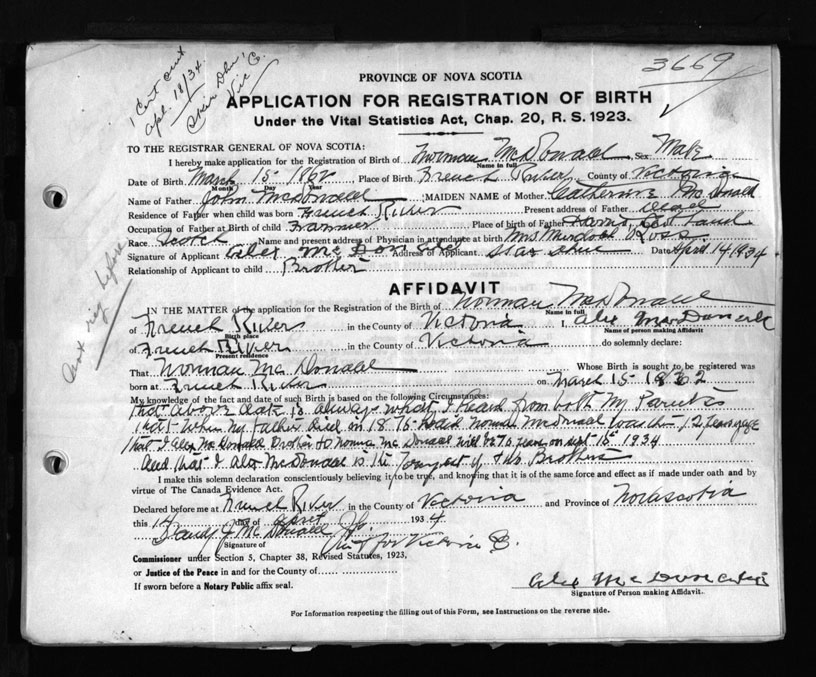 1 Cert sent
Apl. 18/34
Vic C.
3669
PROVINCE OF NOVA SCOTIA
APPLICATION FOR REGISTRATION OF BIRTH
Under the Vital Statistics Act, Chap. 20, R. S. 1923.
TO THE REGISTRAR GENERAL OF NOVA SCOTIA:
I hereby make application for the Registration of Birth of Norman McDonald Sex Male
Name in full
Date of Birth March 15 1862 Place of Birth French River County of Victoria
Month Day Year
Name of Father John McDonald MAIDEN NAME of Mother Catherine McDonald
Residence of Father when child was born French River Present address of Father Dead
Occupation of Father at Birth Farmer Place of birth of Father Harris Scotland
Race Scotch Name and present address of Physician in attendance at birth Mrs Murdoch Ross
Signature of Applicant Alex McDonald Address of Applicant Date April 14 1934
Relationship of Applicant to child Brother
AFFIDAVIT
IN THE MATTER of the application for the Registration of the Birth of Norman McDonald
Name in full
of French River in the County of Victoria I, Alex McDonald
Birth place Name of person making Affidavit
of French River in the County of Victoria do solemnly declare:
Present residence
That Norman McDonald Whose Birth is sought to be registered was
born at French River on March 15 1862
My knowledge of the fact and date of such Birth is based on the following Circumstances:
that above date is always what I heard from both My Parents
that when My father died in 1876 Norman McDonald was 12 years age
that I Alex McDonald Brother to Norman McDonald will be 70 years on Sept 15 1934
And that I Alex McDonald is the Youngest of Brothers
I make this solemn declaration conscientiously believing it to be true, and knowing that it is of the same force and effect as if made under oath and by
virtue of The Canada Evidence Act.
Declared before me at French River in the County of Victoria and Province of Nova Scotia
this 14 day of April 1934.
McDonald J.P.
Signature of for Victoria C.
Commissioner under Section 5, Chapter 38, Revised Statutes, 1923,
or Justice of the Peace in and for the County of
If sworn before a Notary Public affix seal.
Alex McDonald
Signature of Person making Affidavit.
For Information respecting the filling out of this Form, see Instructions on the reverse side.
not reg before